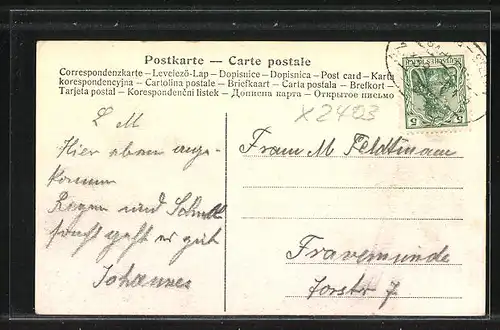 Postkarte — Carte postale
Correspondenzkarte – Levelező-Lap – Dopisnice – Dopisnica – Post card – Karta
korespondencyjna – Cartolina postale – Briefkaart – Carta postala – Brefkort –
Tarjeta postal – Korespondenční listek – Дописна карта – Открытое письмо
X2403
L M
Hier eben ange-
kommen
Regen und
sonst geht es gut
Johannes
Frau M Feldtmann
Travemünde
Torstr 7
5 5
DEUTSCHES REICH